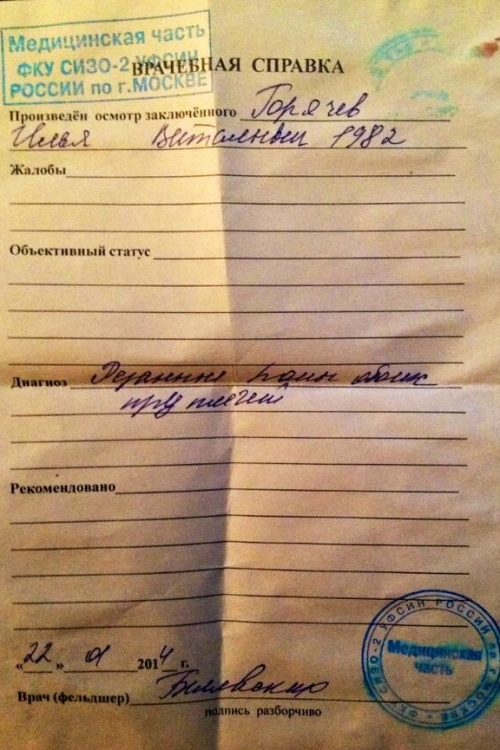 Медицинская часть
ФКУ СИЗО-2 УФСИН
РОССИИ по г.МОСКВЕ
ВРАЧЕБНАЯ СПРАВКА
Произведён осмотр заключённого Горячев
Илья 1982
Жалобы
Объективный статус
Диагноз Резанные раны обоих
предплечий
Рекомендовано
«22» 2014 г.
Врач (фельдшер)
подпись разборчиво
ФКУ СИЗО-2 УФСИН РОССИИ по г. МОСКВЕ
Медицинская
часть